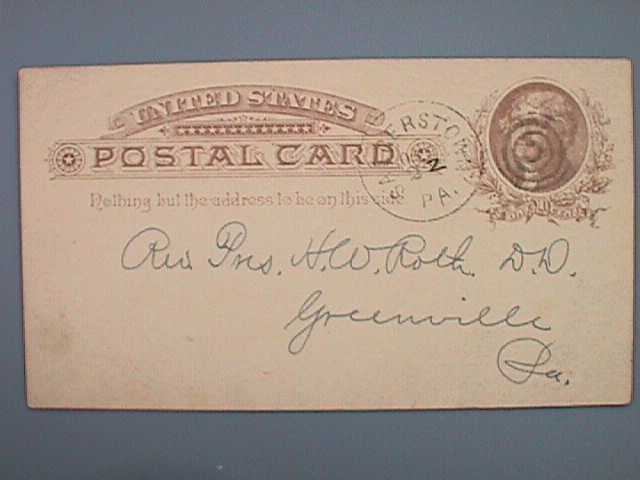 UNITED STATES
POSTAL CARD
Nothing but the address to be on this side
PA.
Rev. Pres. H. W. Roth. D. D.
Greenville
Pa.